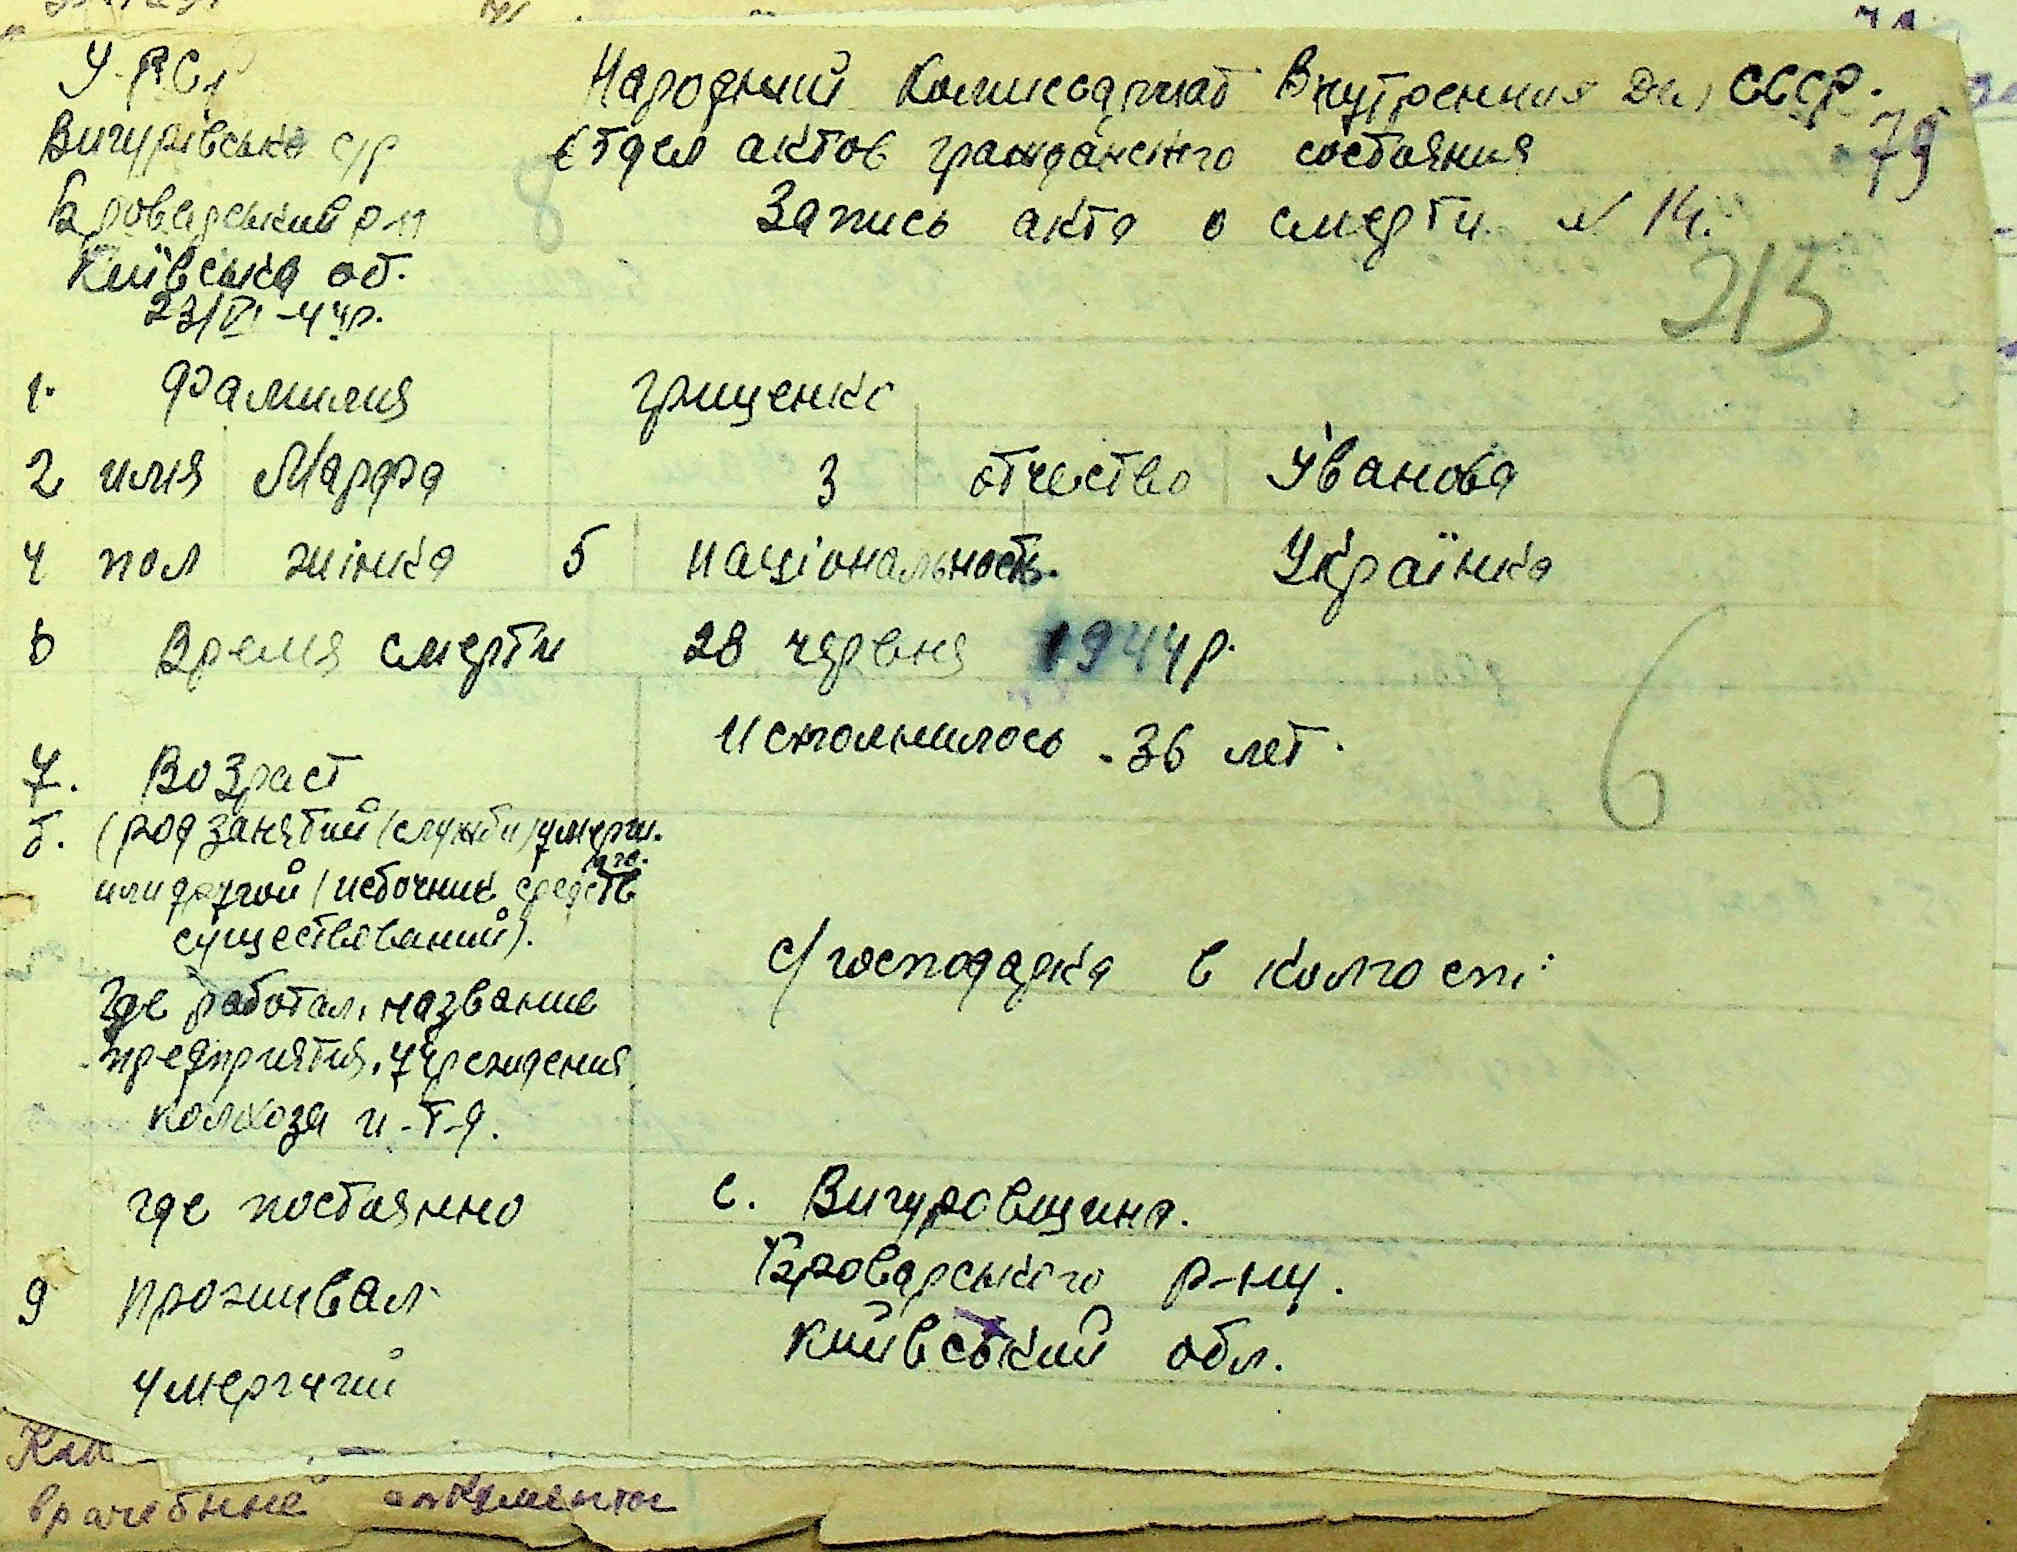 У.РСР
Вигурівська с/р
Броварський р-н
Київська об.
23/VI-44р.
Народний Комиссариат Внутренния Дел СССР.
Отдел актов гражданского состояния
79
Запись акта о смерти N 14.
8
215
1. Фамилия Грищенко
2 имя Марфа 3 отчество Іванова
4 пол жінка 5 національность. Українка
6 Время смерти 28 червня 1944р.
7. Возраст Исполнилось - 36 лет.
6
б. (род занятий (служби) умерш.
аго.
или другой (источник средств
существований).
с/господарка в колгоспі
Где работал, название
предприятия, учреждения
колхоза и-т-д.
где постоянно с. Вигуровщина.
Броварського р-ну.
9 проживал
Київський обл.
умерший
Как
врачебные документы